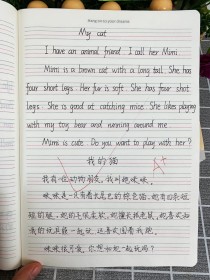 My cat
I have an animal friend. I call her Mimi.
Mimi is a brown cat with a long tail. She has
four short legs. Her fur is soft. She has four short
legs. She is good at catching mice. She likes playing
with my toy bear and running around me.
Mimi is cute. Do you want to play with her?
我的猫
A+
我有一位动物朋友，我叫她咪咪，
咪咪是一只有着长尾巴的棕色猫，她有四条短
短的腿，她的毛很柔软，她擅长抓老鼠，她喜欢和
我的玩具熊一起玩，还喜欢围着我跑。
咪咪很可爱，你想和她一起玩吗？